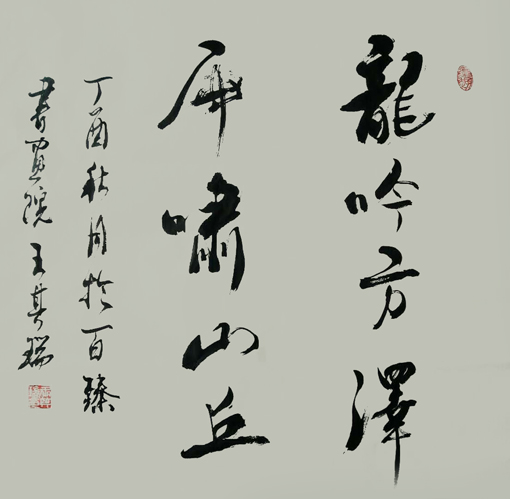 龍吟方澤
虎嘯山丘
丁酉秋月於百臻
書画院王其瑞